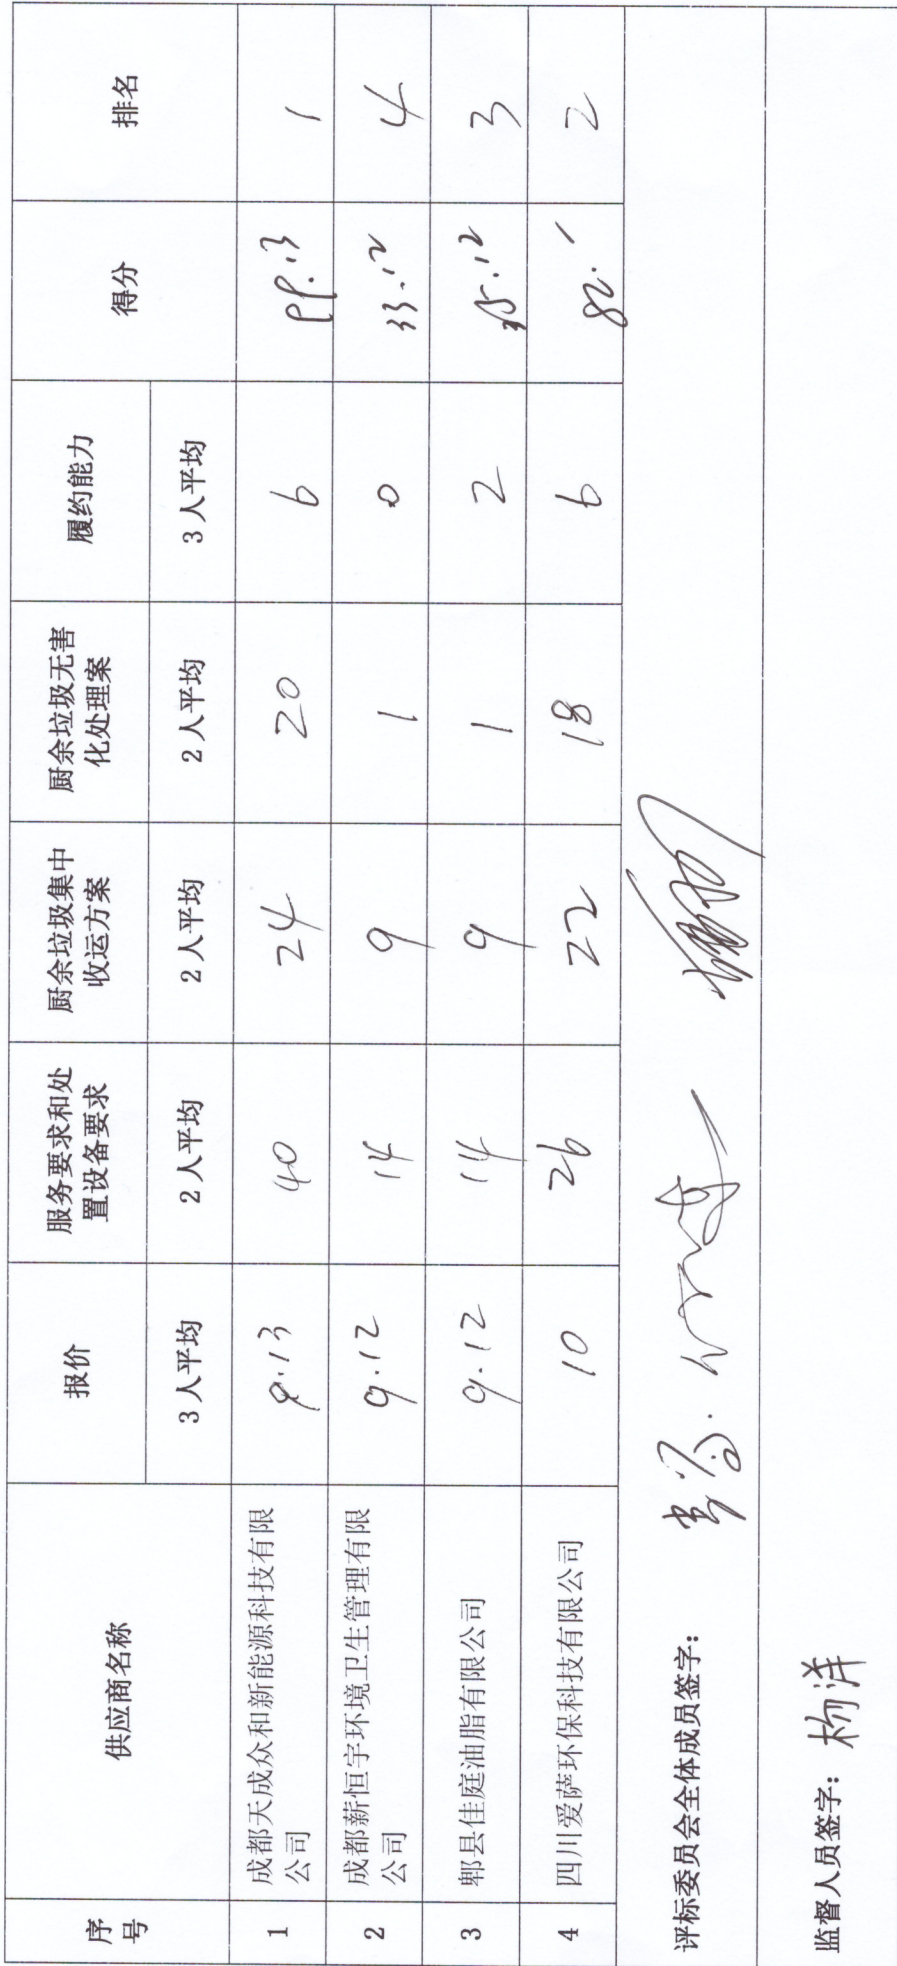 序号 供应商名称 报价 服务要求和处置设备要求 厨余垃圾集中收运方案 厨余垃圾无害化处理案 履约能力 得分 排名
3人平均 2人平均 2人平均 2人平均 3人平均
1 成都天成众和新能源科技有限公司 9.13 40 24 20 6 99.13 1
2 成都薪恒宇环境卫生管理有限公司 9.12 14 9 1 0 33.12 4
3 郫县佳庭油脂有限公司 9.12 14 9 1 2 35.12 3
4 四川爱萨环保科技有限公司 10 26 22 18 6 82.1 2
评标委员会全体成员签字：
监督人员签字：杨洋